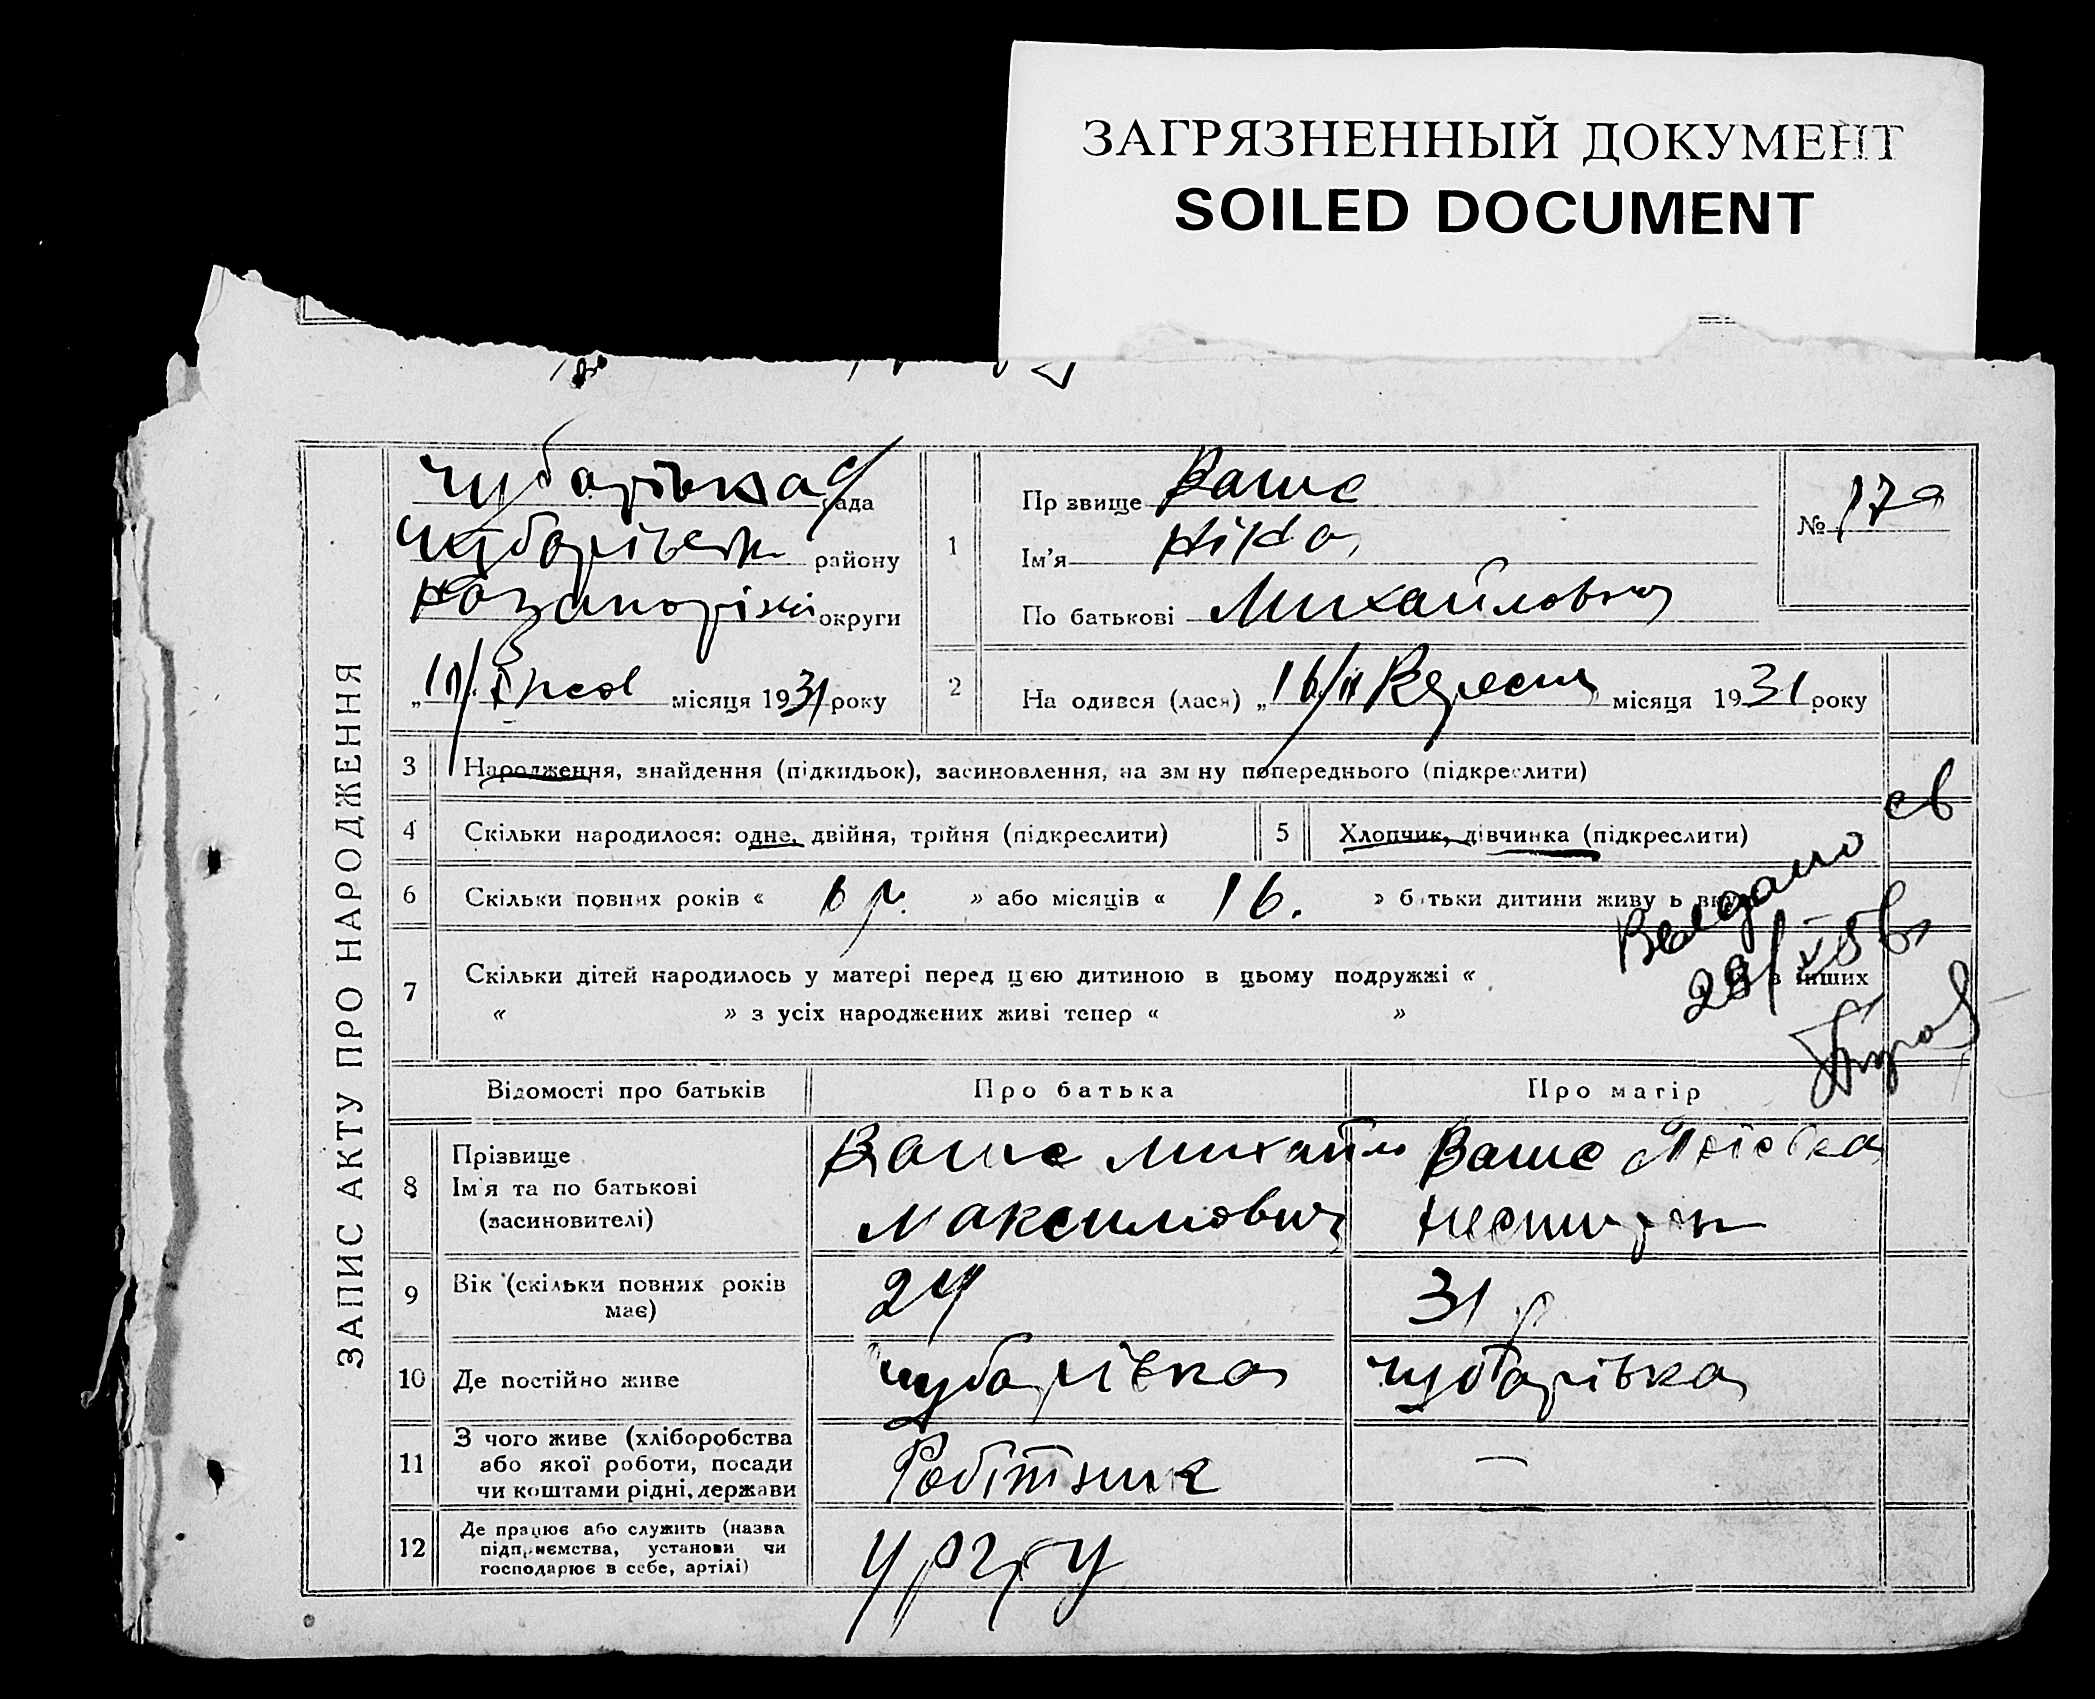 ЗАГРЯЗНЕННЫЙ ДОКУМЕНТ
SOILED DOCUMENT
ЗАПИС АКТУ ПРО НАРОДЖЕННЯ
Чубарівка с/рада
Чубарівськ району
округи
місяця 1931 року
1
Пр звище Ваше
Ім'я Ніна
По батькові Михайловна
№ 179
2
На одився (лася) „16/ІХ Вересня місяця 1931 року
3
Народження, знайдення (підкидьок), засиновлення, на зм ну попереднього (підкреслити)
4
Скільки народилося: одне, двійня, трійня (підкреслити)
5
Хлопчик, дівчинка (підкреслити)
6
Скільки повних років « » або місяців « 16. » б тьки дитини живу ь вку
7
Скільки дітей народилось у матері перед цією дитиною в цьому подружжі « в інших
« » з усіх народжених живі тепер « »
Відомості про батьків
Про батька
Про матір
8
Прізвище
Ім'я та по батькові
(засиновителі)
Ваше Михайло
Максимович
Ваше
9
Вік (скільки повних років
має)
24
31 р
10
Де постійно живе
Чубарівка
Чубарівка
11
З чого живе (хліборобства
або якої роботи, посади
чи коштами рідні, держави
Робітник
—
12
Де працює або служить (назва
підприємства, установи чи
господарює в себе, артілі)